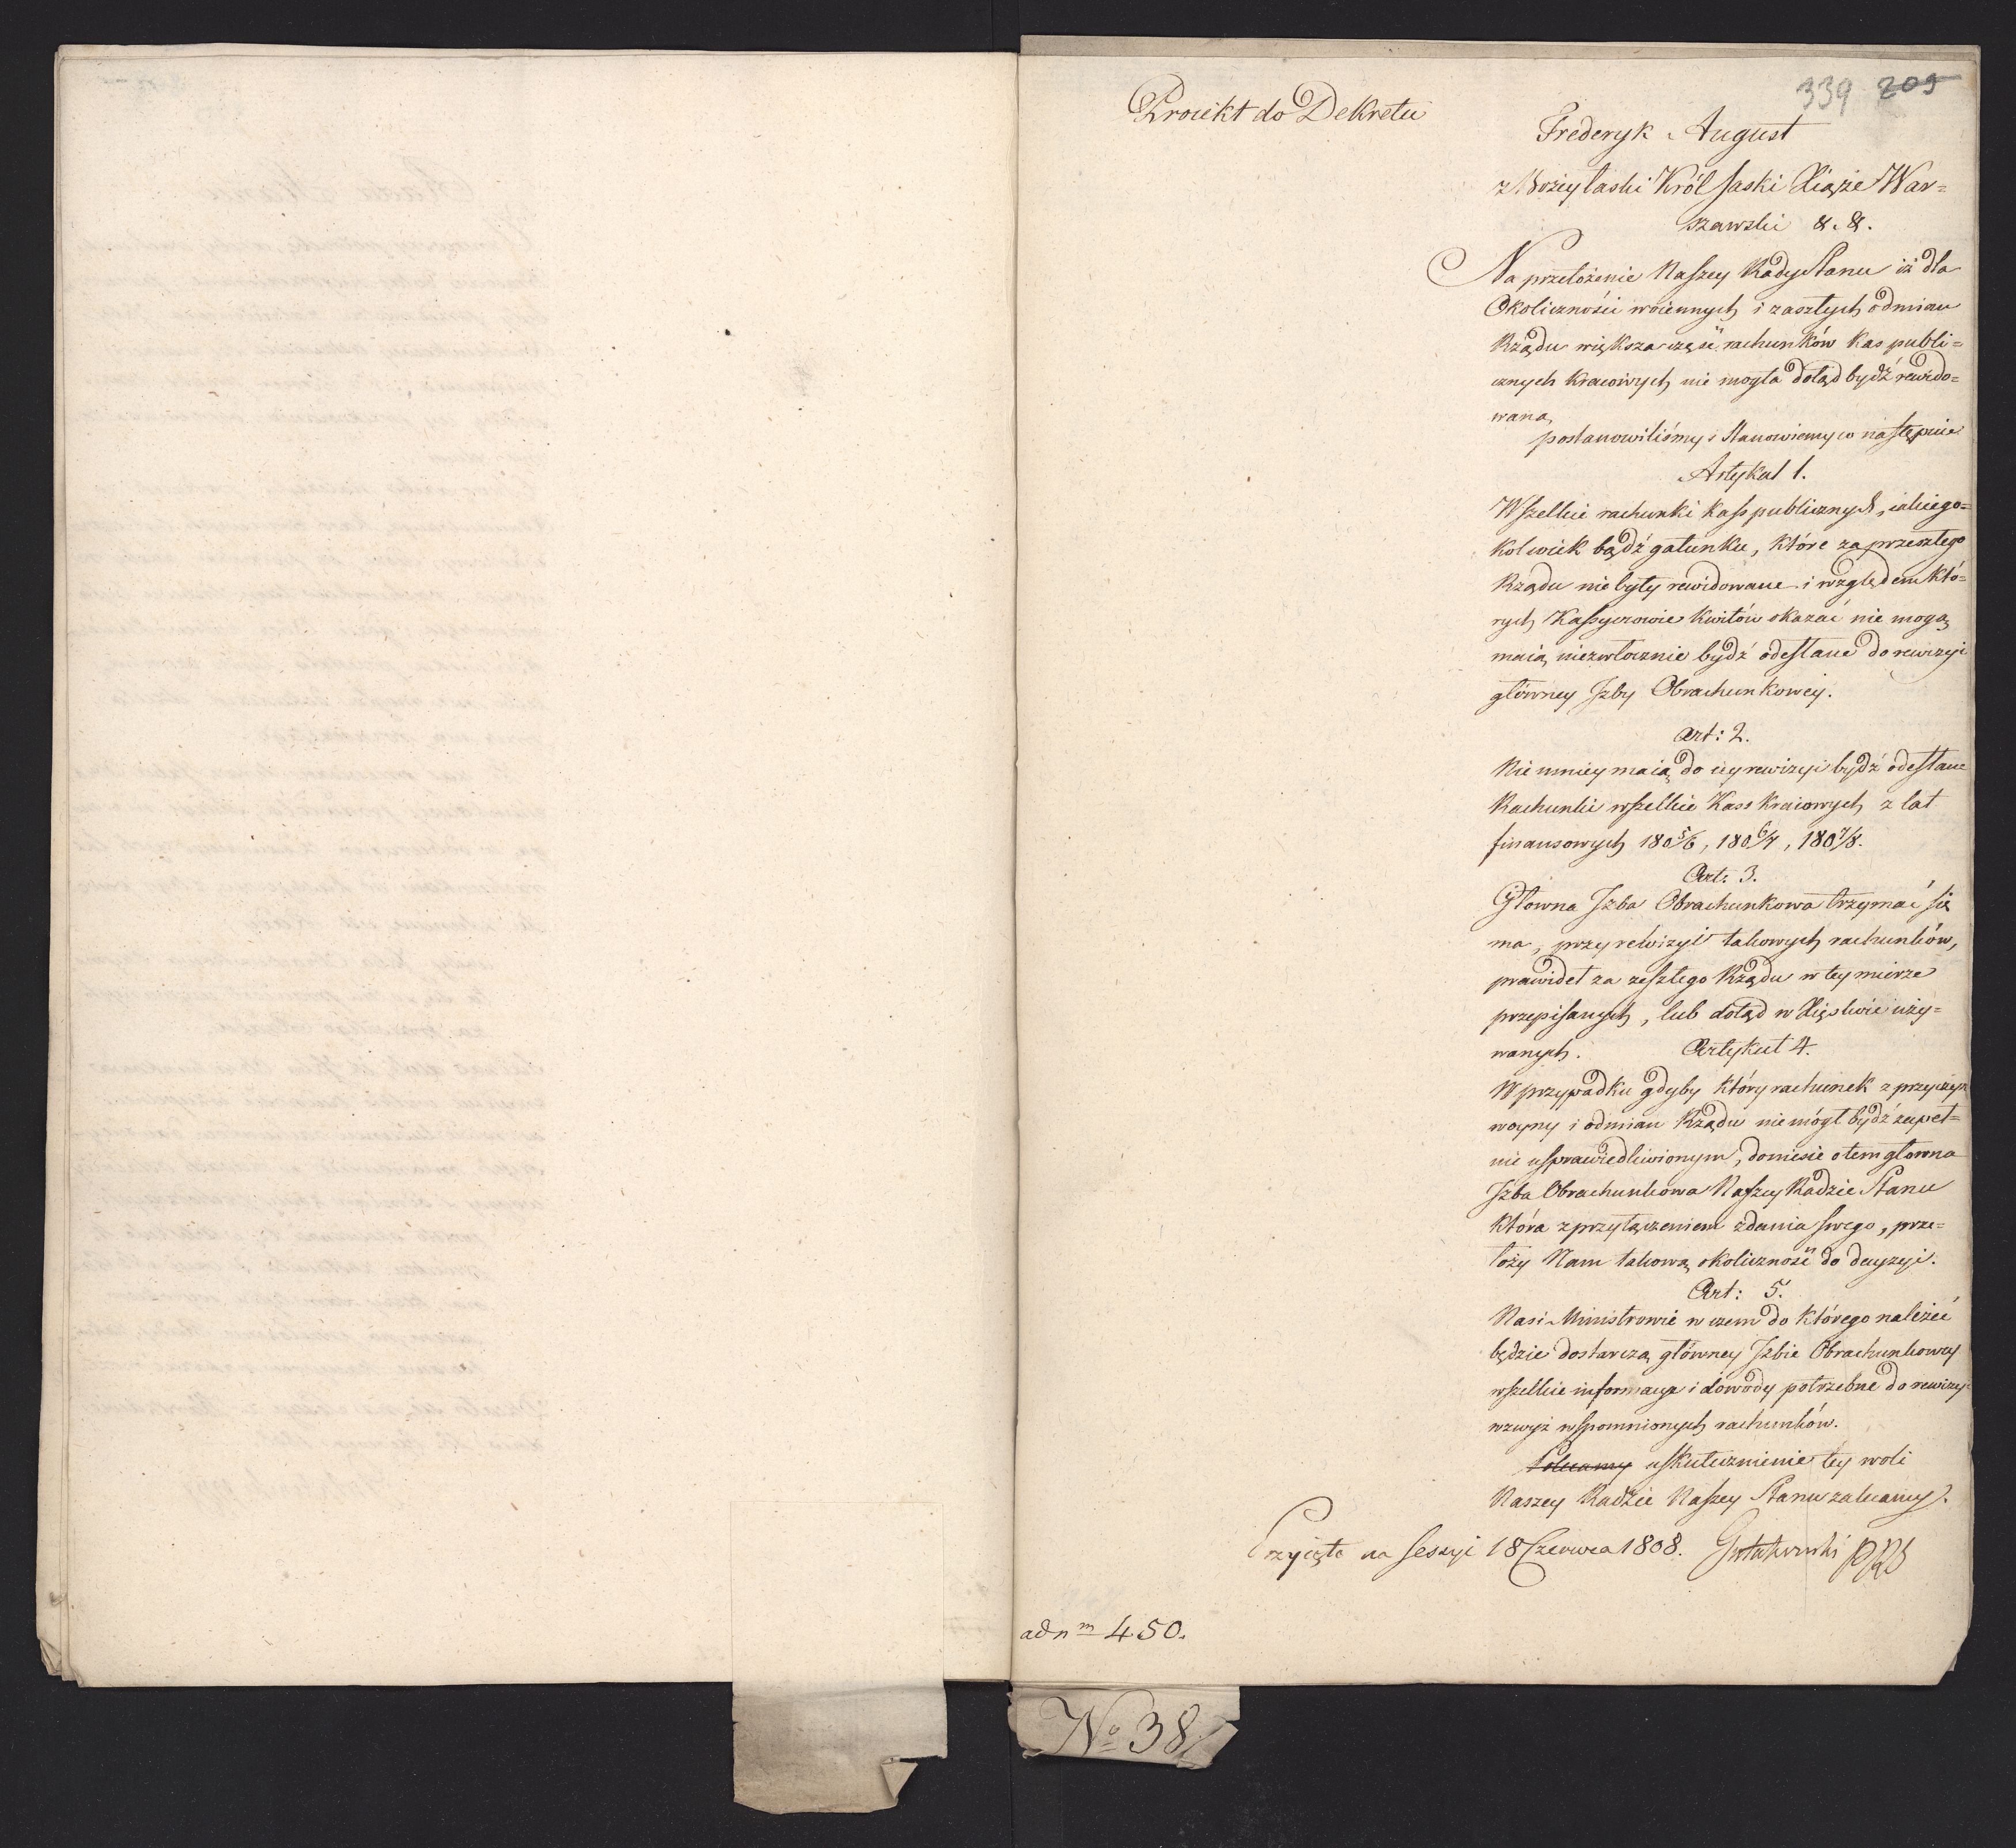 339 209
Proiekt do Dekretu
Frederyk August
z Bożey łaski Król Saski Xiąże War=
szawski &. &.
Na przełożenie Naszey Rady Stanu iż dla
Okoliczności woiennych i zaszłych odmian
Rządu większa część rachunków kas publi=
cznych kraiowych nie mogła dotąd bydź rewido=
wana,
postanowiliśmy i Stanowiemy co następuie
Artykuł 1.
Wszelkie rachunki kass publicznych, iakiego=
kolwiek bądź gatunku, które za przeszłego
Rządu nie były rewidowane i względem któ=
rych Kassyerowie kwitów okazać nie mogą
maią niezwłocznie bydź odesłane do rewizyi
główney Izby Obrachunkowey.
Art: 2.
Nie mniey maią do iey rewizyi bydź odesłane
Rachunki wszelkie Kass Kraiowych z lat
finansowych 180 5/6, 180 6/7, 180 7/8.
Art: 3.
Główna Izba Obrachunkowa trzymać się
ma, przy rewizyi takowych rachunków,
prawideł za zeszłego Rządu w tey mierze
przepisanych, lub dotąd w Xięstwie uży=
wanych.
Artykuł 4.
W przypadku gdyby który rachunek z przyczyn
woyny i odmian Rządu nie mógł bydź zupeł=
nie usprawiedliwionym, doniesie o tem głowna
Izba Obrachunkowa Naszey Radzie Stanu
która z przyłączeniem zdania swego, prze=
łoży Nam takową okoliczność do decyzyi.
Art: 5.
Nasi Ministrowie w czem do którego należeć
będzie dostarczą główney Izbie Obrachunkowey
wszelkie informacye i dowody potrzebne do rewizyi
wzwyż wspomnionych rachunków.
Polecamy uskutecznienie tey woli
Naszey Radzie Naszey Stanu zalecamy.
Przyięte na Sessyi 18 Czerwca 1808. Gutakowski PRS
ad nm 450.
No 38